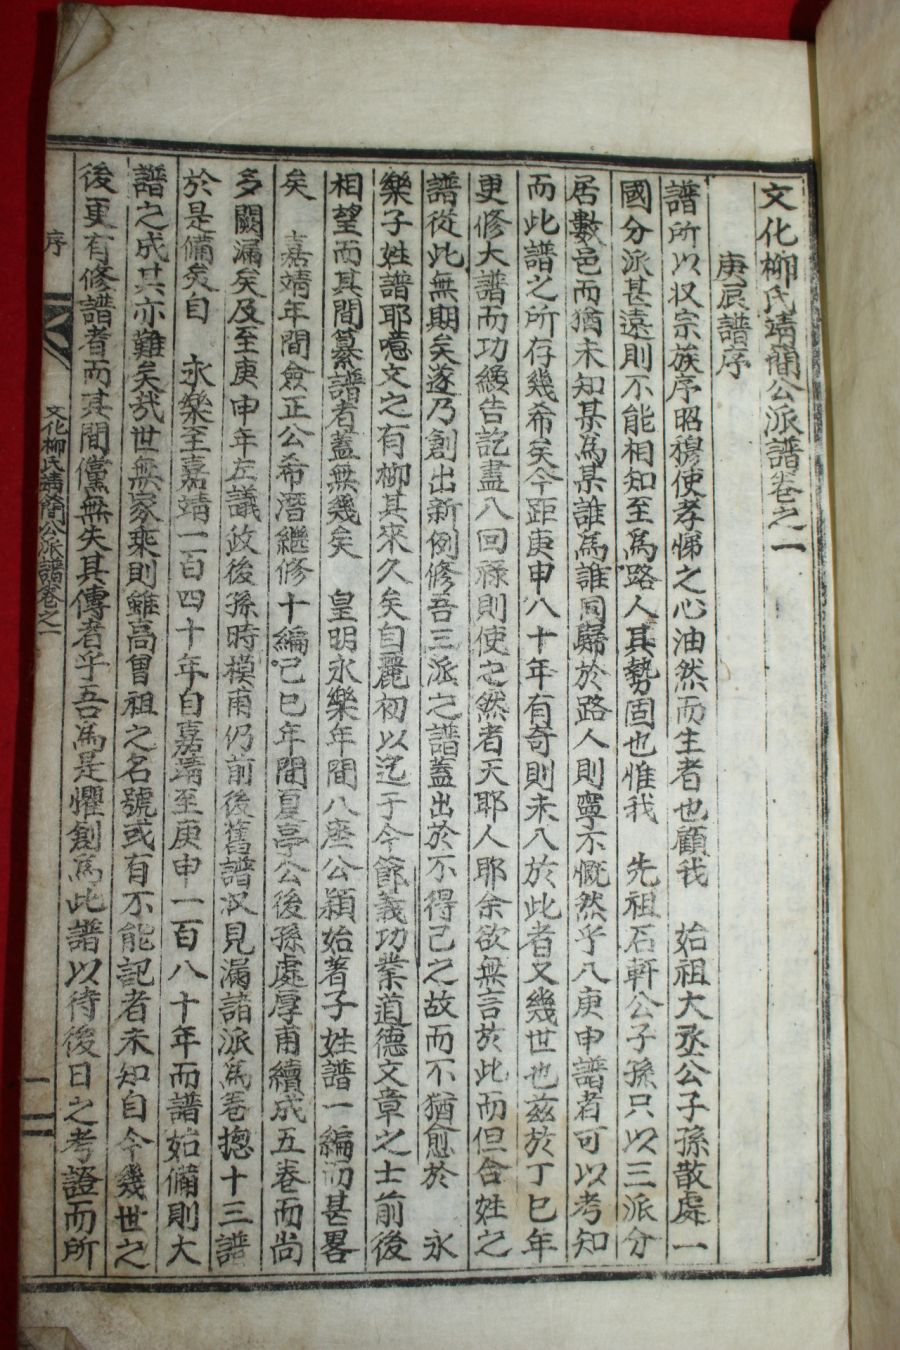 文化柳氏靖簡公派譜卷之一
庚辰譜序
譜所以収宗族序昭穆使孝悌之心油然而生者也顧我　始祖大丞公子孫散處一
國分派甚遠則不能相知至爲路人其勢固也惟我　先祖石軒公子孫只以三派分
居數邑而猶未知某爲某誰爲誰同歸於路人則寧不慨然乎八庚申譜者可以考知
而此譜之所存幾希矣今距庚申八十年有奇則未入於此者又幾世也兹於丁巳年
更修大譜而功纔告訖盡入回祿則使之然者天耶人耶余欲無言於此而但合姓之
譜從此無期矣遂乃創出新例修吾三派之譜蓋出於不得已之故而不猶愈於　永
樂子姓譜耶噫文之有柳其來久矣自麗初以迄于今節義功業道德文章之士前後
相望而其間纂譜者蓋無幾矣　皇明永樂年間八座公穎始著子姓譜一編而甚畧
矣　嘉靖年間僉正公希潛繼修十編己巳年間夏亭公後孫處厚甫續成五卷而尚
多闕漏矣及至庚申年左議政後孫時模甫仍前後舊譜収見漏諸派爲卷揔十三譜
於是備矣自　永樂至嘉靖一百四十年自嘉靖至庚申一百八十年而譜始備則大
譜之成其亦難矣哉世無家乘則雖高曾祖之名號或有不能記者未知自今幾世之
後更有修譜者而其間儻無失其傳者乎吾爲是懼創爲此譜以待後日之考證而所
序
文化柳氏靖簡公派譜卷之一
一